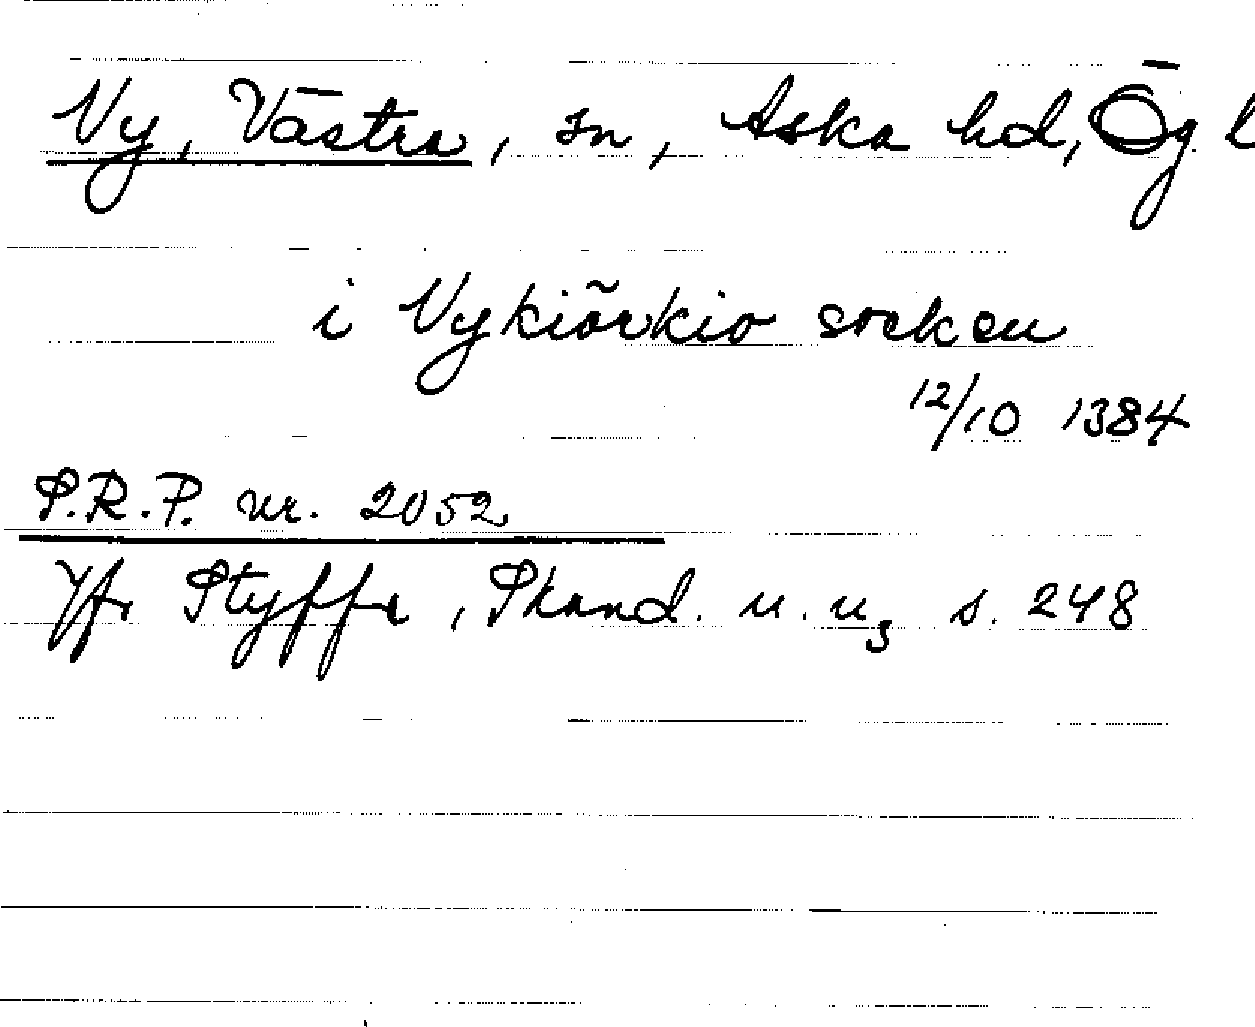 Vy, Västra, sn, Aska hd, Ög l
i Vykiörkio socken
12/10 1384
P.R.P. nr. 2052
Jfr Styffe, Skand. u. u3 s. 248